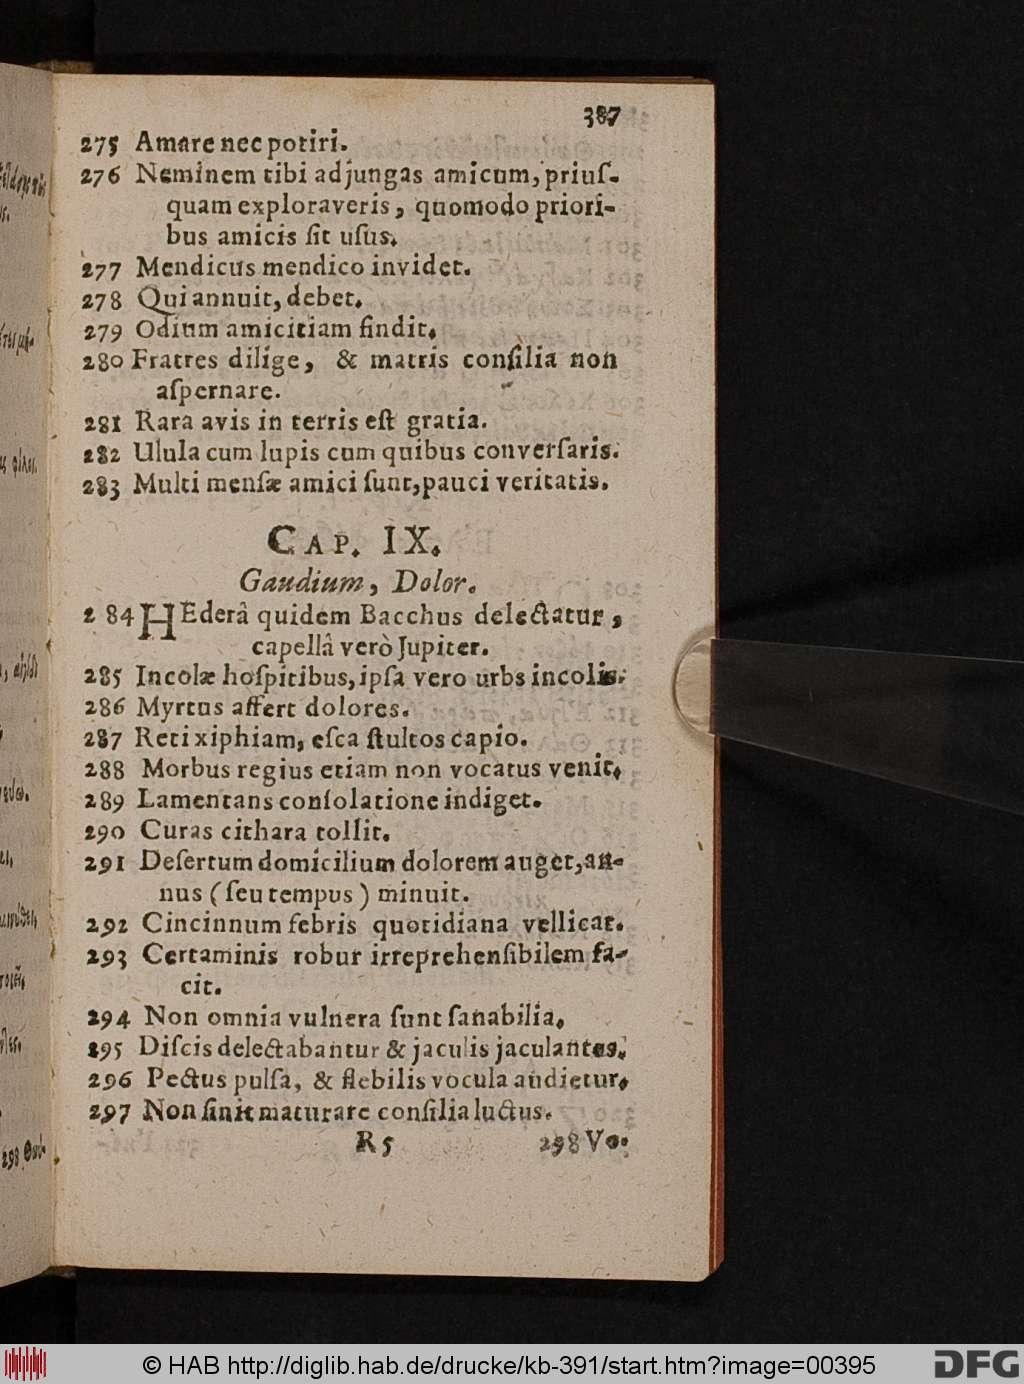 387
275 Amare nec potiri.
276 Neminem tibi adjungas amicum, priuſ-
quam exploraveris, quomodo priori-
bus amicis ſit uſus.
277 Mendicus mendico invidet.
278 Qui annuit, debet.
279 Odium amicitiam findit.
280 Fratres dilige, & matris conſilia non
aſpernare.
281 Rara avis in terris eſt gratia.
282 Ulula cum lupis cum quibus converſaris.
283 Multi menſæ amici ſunt, pauci veritatis.
CAP. IX.
Gaudium, Dolor.
284 HEderâ quidem Bacchus delectatur,
capellâ verò Jupiter.
285 Incolæ hoſpitibus, ipſa vero urbs incolis.
286 Myrtus affert dolores.
287 Reti xiphiam, eſca ſtultos capio.
288 Morbus regius etiam non vocatus venit.
289 Lamentans conſolatione indiget.
290 Curas cithara tollit.
291 Deſertum domicilium dolorem auget, an-
nus (ſeu tempus) minuit.
292 Cincinnum febris quotidiana vellicat.
293 Certaminis robur irreprehenſibilem fa-
cit.
294 Non omnia vulnera ſunt ſanabilia.
295 Diſcis delectabantur & jaculis jaculantes.
296 Pectus pulſa, & flebilis vocula audietur.
297 Non ſinit maturare conſilia luctus.
R 5 298 Vo-
© HAB http://diglib.hab.de/drucke/kb-391/start.htm?image=00395
DFG